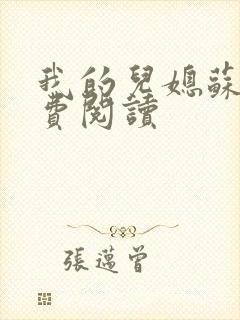 我的兒媳蘇
費閱讀
張邁曾